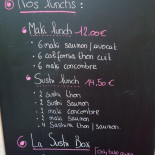 Nos lunchs :
Maki lunch 12.00€
• 6 maki saumon/avocat
• 6 california thon cuit
• 6 maki concombre
Sushi lunch 14,50€
• 2 sushi thon
• 2 sushi saumon
• 2 maki concombre
• 2 maki saumon
• 4 sashimi thon/saumon
La Sushi Box